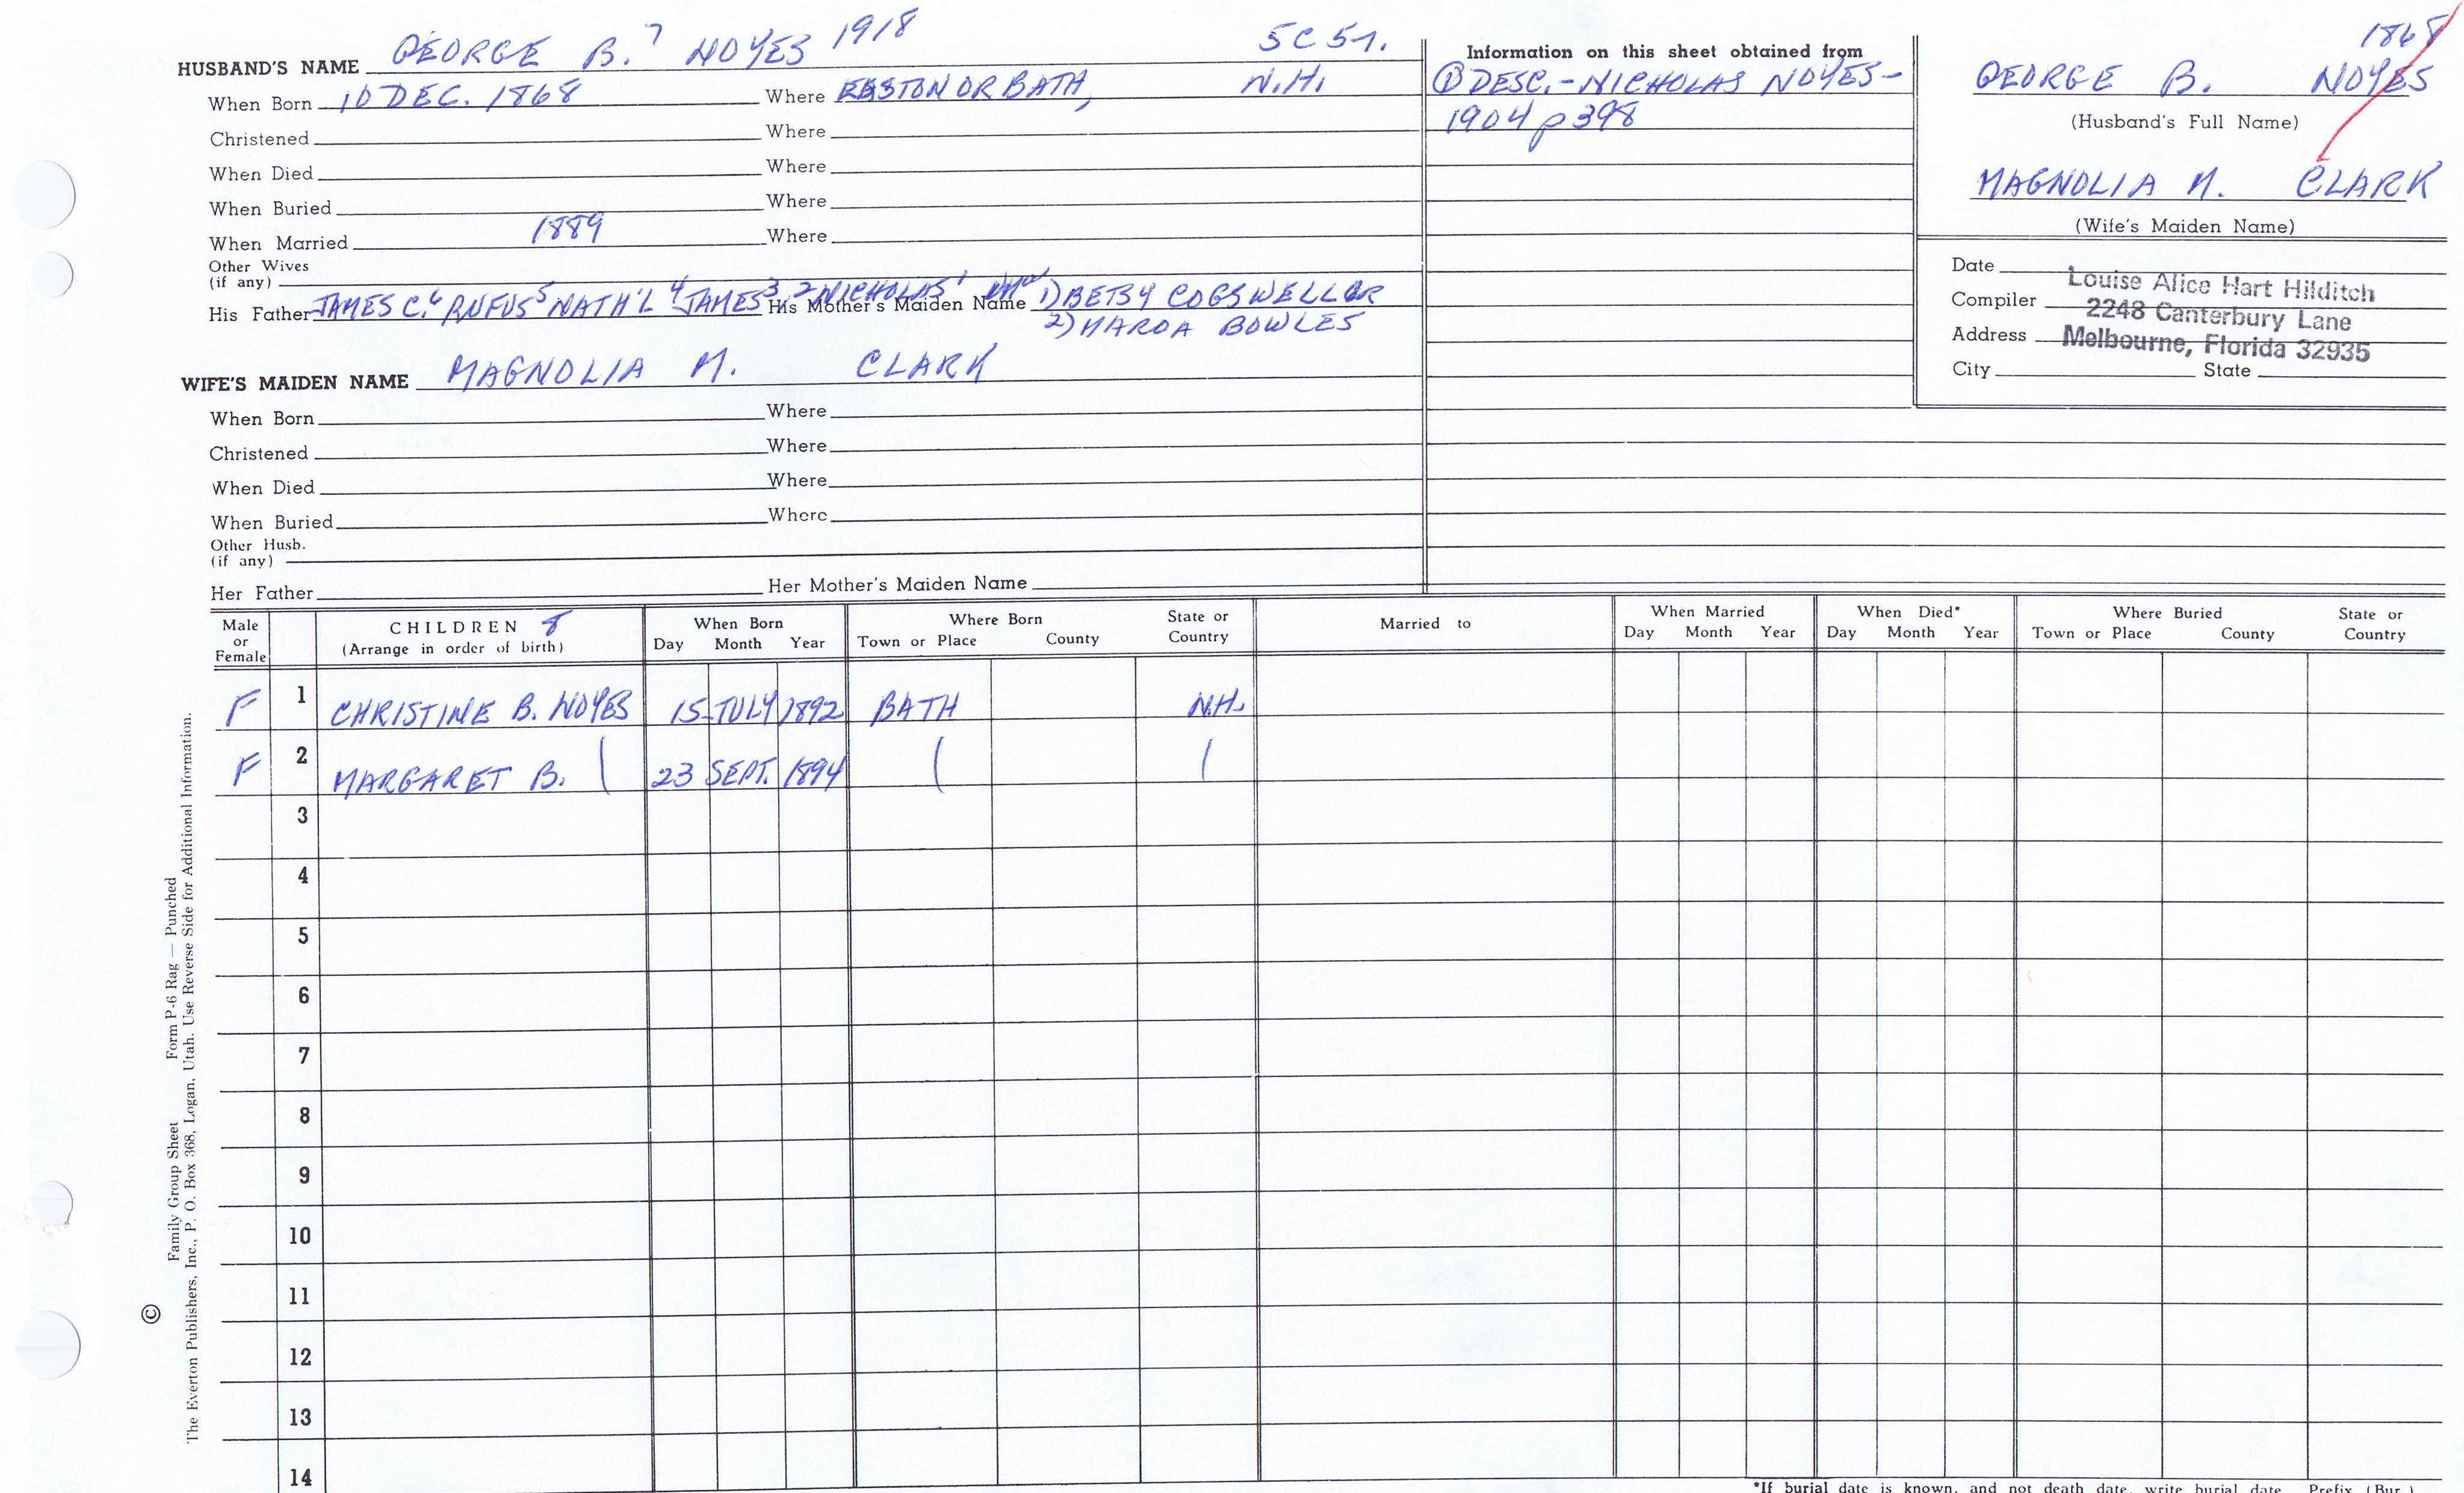 HUSBAND'S NAME GEORGE B. 7 NOYES 1918 5C5
When Born 10 DEC. 1868 Where EASTON OR BATH, N.H.
Christened Where
When Died Where
When Buried Where
When Married 1889 Where
Other Wives
(if any)
His Father JAMES C.6 RUFUS5 NATH'L 4 JAMES3 2 NICHOLAS1 His Mother's Maiden Name 1) BETSY COGSWELL OR
2) MARDA BOWLES
WIFE'S MAIDEN NAME MAGNOLIA M. CLARK
When Born Where
Christened Where
When Died Where
When Buried Where
Other Husb.
(if any)
Her Father Her Mother's Maiden Name
Information on this sheet obtained from
① DESC.-NICHOLAS NOYES-
1904 p398
1868
GEORGE B. NOYES
(Husband's Full Name)
MAGNOLIA M. CLARK
(Wife's Maiden Name)
Date
Louise Alice Hart Hilditch
Compiler
2248 Canterbury Lane
Address
Melbourne, Florida 32935
City State
Male or Female CHILDREN 8 (Arrange in order of birth) When Born Day Month Year Where Born Town or Place County State or Country Married to When Married Day Month Year When Died* Day Month Year Where Buried Town or Place County State or Country
F 1 CHRISTINE B. NOYES 15 JULY 1892 BATH N.H.
F 2 MARGARET B. | 23 SEPT. 1894 | |
3
4
5
6
7
8
9
10
11
12
13
14
Family Group Sheet Form P-6 Rag — Punched
© The Everton Publishers, Inc., P. O. Box 368, Logan, Utah. Use Reverse Side for Additional Information.
*If burial date is known, and not death date, write burial date. Prefix (Bur.)